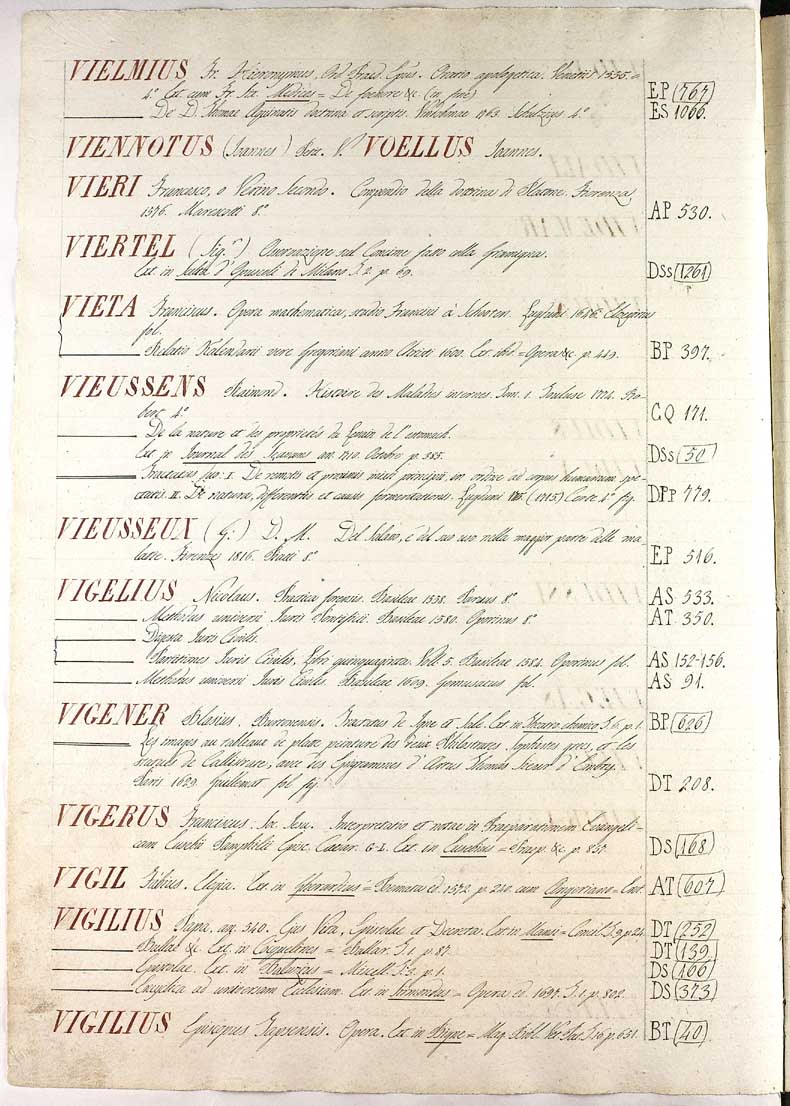 VIELMIUS Fr. Hieronymus, Ord. Praed. Epus. Oratio apologetica. Venetiis 1535 =
4.° Ext. cum Fr. = De &c (in fine) EP (767)
——— De D. Thomae Aquinatis doctrina et scriptis. 1763. 4.° ES 1066.
VIENNOTUS (Joannes) V.s VOELLUS Joannes.
VIERI Francesco, o Verino Secondo. Compendio della dottrina di Platone. Fiorenza
1576. Marescotti 8.° AP 530.
VIERTEL (Sig.r) Osservazione sul Concime fatto colla Gramigna.
Ext. in Scelta d'Opuscoli di Milano T. 2. p. 69. DSs (1261)
VIETA Franciscus. Opera mathematica, studio Francisci à Schooten. Lugduni 1646. Elzevirius
fol.
——— Relatio Kalendarii vere Gregoriani anno Christi 1600. Ext. ibid = Opera &c. p. 449. BP 397.
VIEUSSENS Raimond. Histoire des Maladies internes. Tom. 1. Toulouse 1774. Ro-
bert 4.° CQ 171.
——— De la nature et des proprietés du levain de l'estomach.
Ext. in Journal des Scavans an. 1710. Octobre p. 385. DSs (50)
——— Tractatus duo: I. De remotis et proximis mixti principiis, in ordine ad corpus humanum spe-
ctatis. II. De natura, differentiis et causis fermentationis. Lugduni (1715) Certe 4.° fig. DPp 779.
VIEUSSEUX (G:) D. M. Del Salasso, e del suo uso nella maggior parte delle ma-
lattie. Firenze 1816. Piatti 8.° EP 516.
VIGELIUS Nicolaus. Practica forensis. Basileae 8.° AS 533.
——— Methodus universi Juris Pontificii. Basileae 1580. Oporinus 8.° AT 350.
——— Digesta Juris Civilis.
——— Juris Civilis, Libri quinquaginta. Voll. 5. Basileae 1584. Oporinus fol. AS 152-156.
——— Methodus universi Juris Civilis. Basileae 1609. fol. AS 91.
VIGENER Blasius, Tractatus de Igne et Sale. Ext. in Theatro chemico T. 6. p. 1. BP (626)
——— Les images ou tableaux de platte peinture des deux Philostrates Sophistes grecs, et les
statues de Callistrate, avec des Epigrammes d'Artus Thomas Sieur d'Embry.
Paris 1629. Guillemot fol. fig. DT 208.
VIGERUS Franciscus Soc. Jesu. Interpretatio et notae in Praeparationem Evangeli-
cam Eusebii Pamphili Episc. Caesar. G-L. Ext. in Eusebius = Praep. &c. p. DS (168)
VIGIL Fabius. Elegia. Ext. in Gherardius = ed. 1572. p. 240. cum = AT (607)
VIGILIUS Papa, an. 540. Ejus Vita, Epistolae et Decreta. Ext. in Mansi = Concil. T. 9. p. DT (252)
——— Bullae &c. Ext. in Cocquelines = Bullar. T. 1. p. 87. DT (139)
——— Epistolae. Ext. in Baluzius = Miscell. T. 3. p. 1. DS (166)
——— Encyclica ad universam Ecclesiam. Ext. in Sirmondus = Opera ed. 1697. T. 1. p. 802. DS (373)
VIGILIUS Episcopus Tapsensis. Opera. Ext. in Bigne = Mag. Bibl. Vet. Pat. T. 16 p. 631. BT (40)